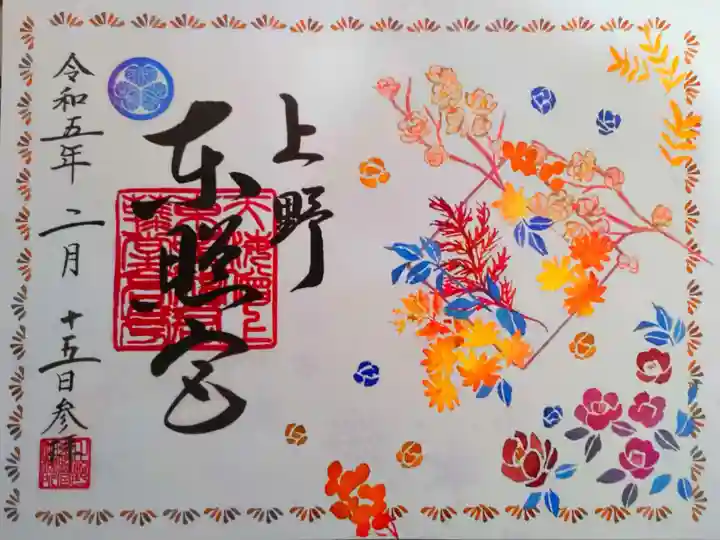 上野
东照宮
令和五年 二月 十五日参拝